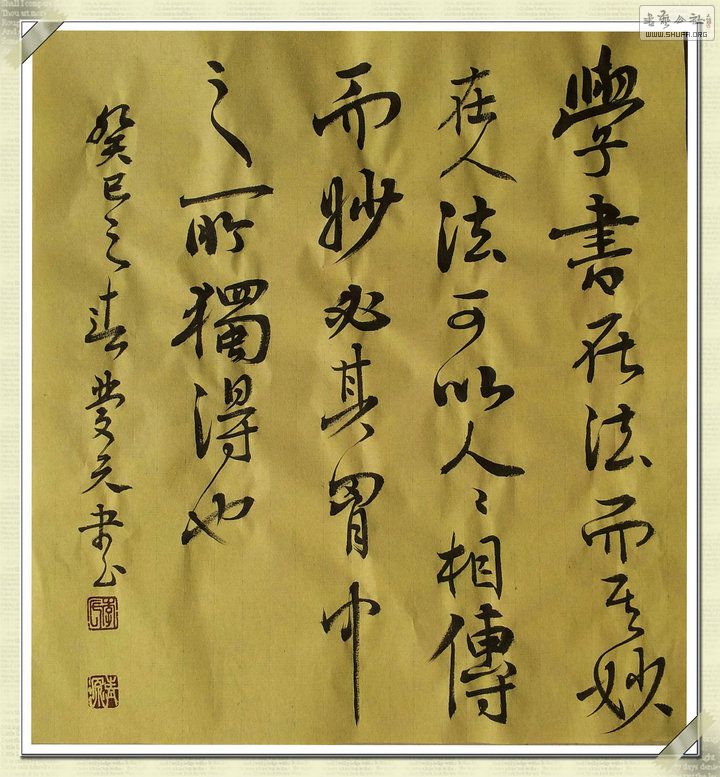 書艺公社
WWW.SHUFA.ORG
學書在法而其妙
在人法可以人〻相傳
而妙必其胷中
之所獨得也
癸巳之春 元书